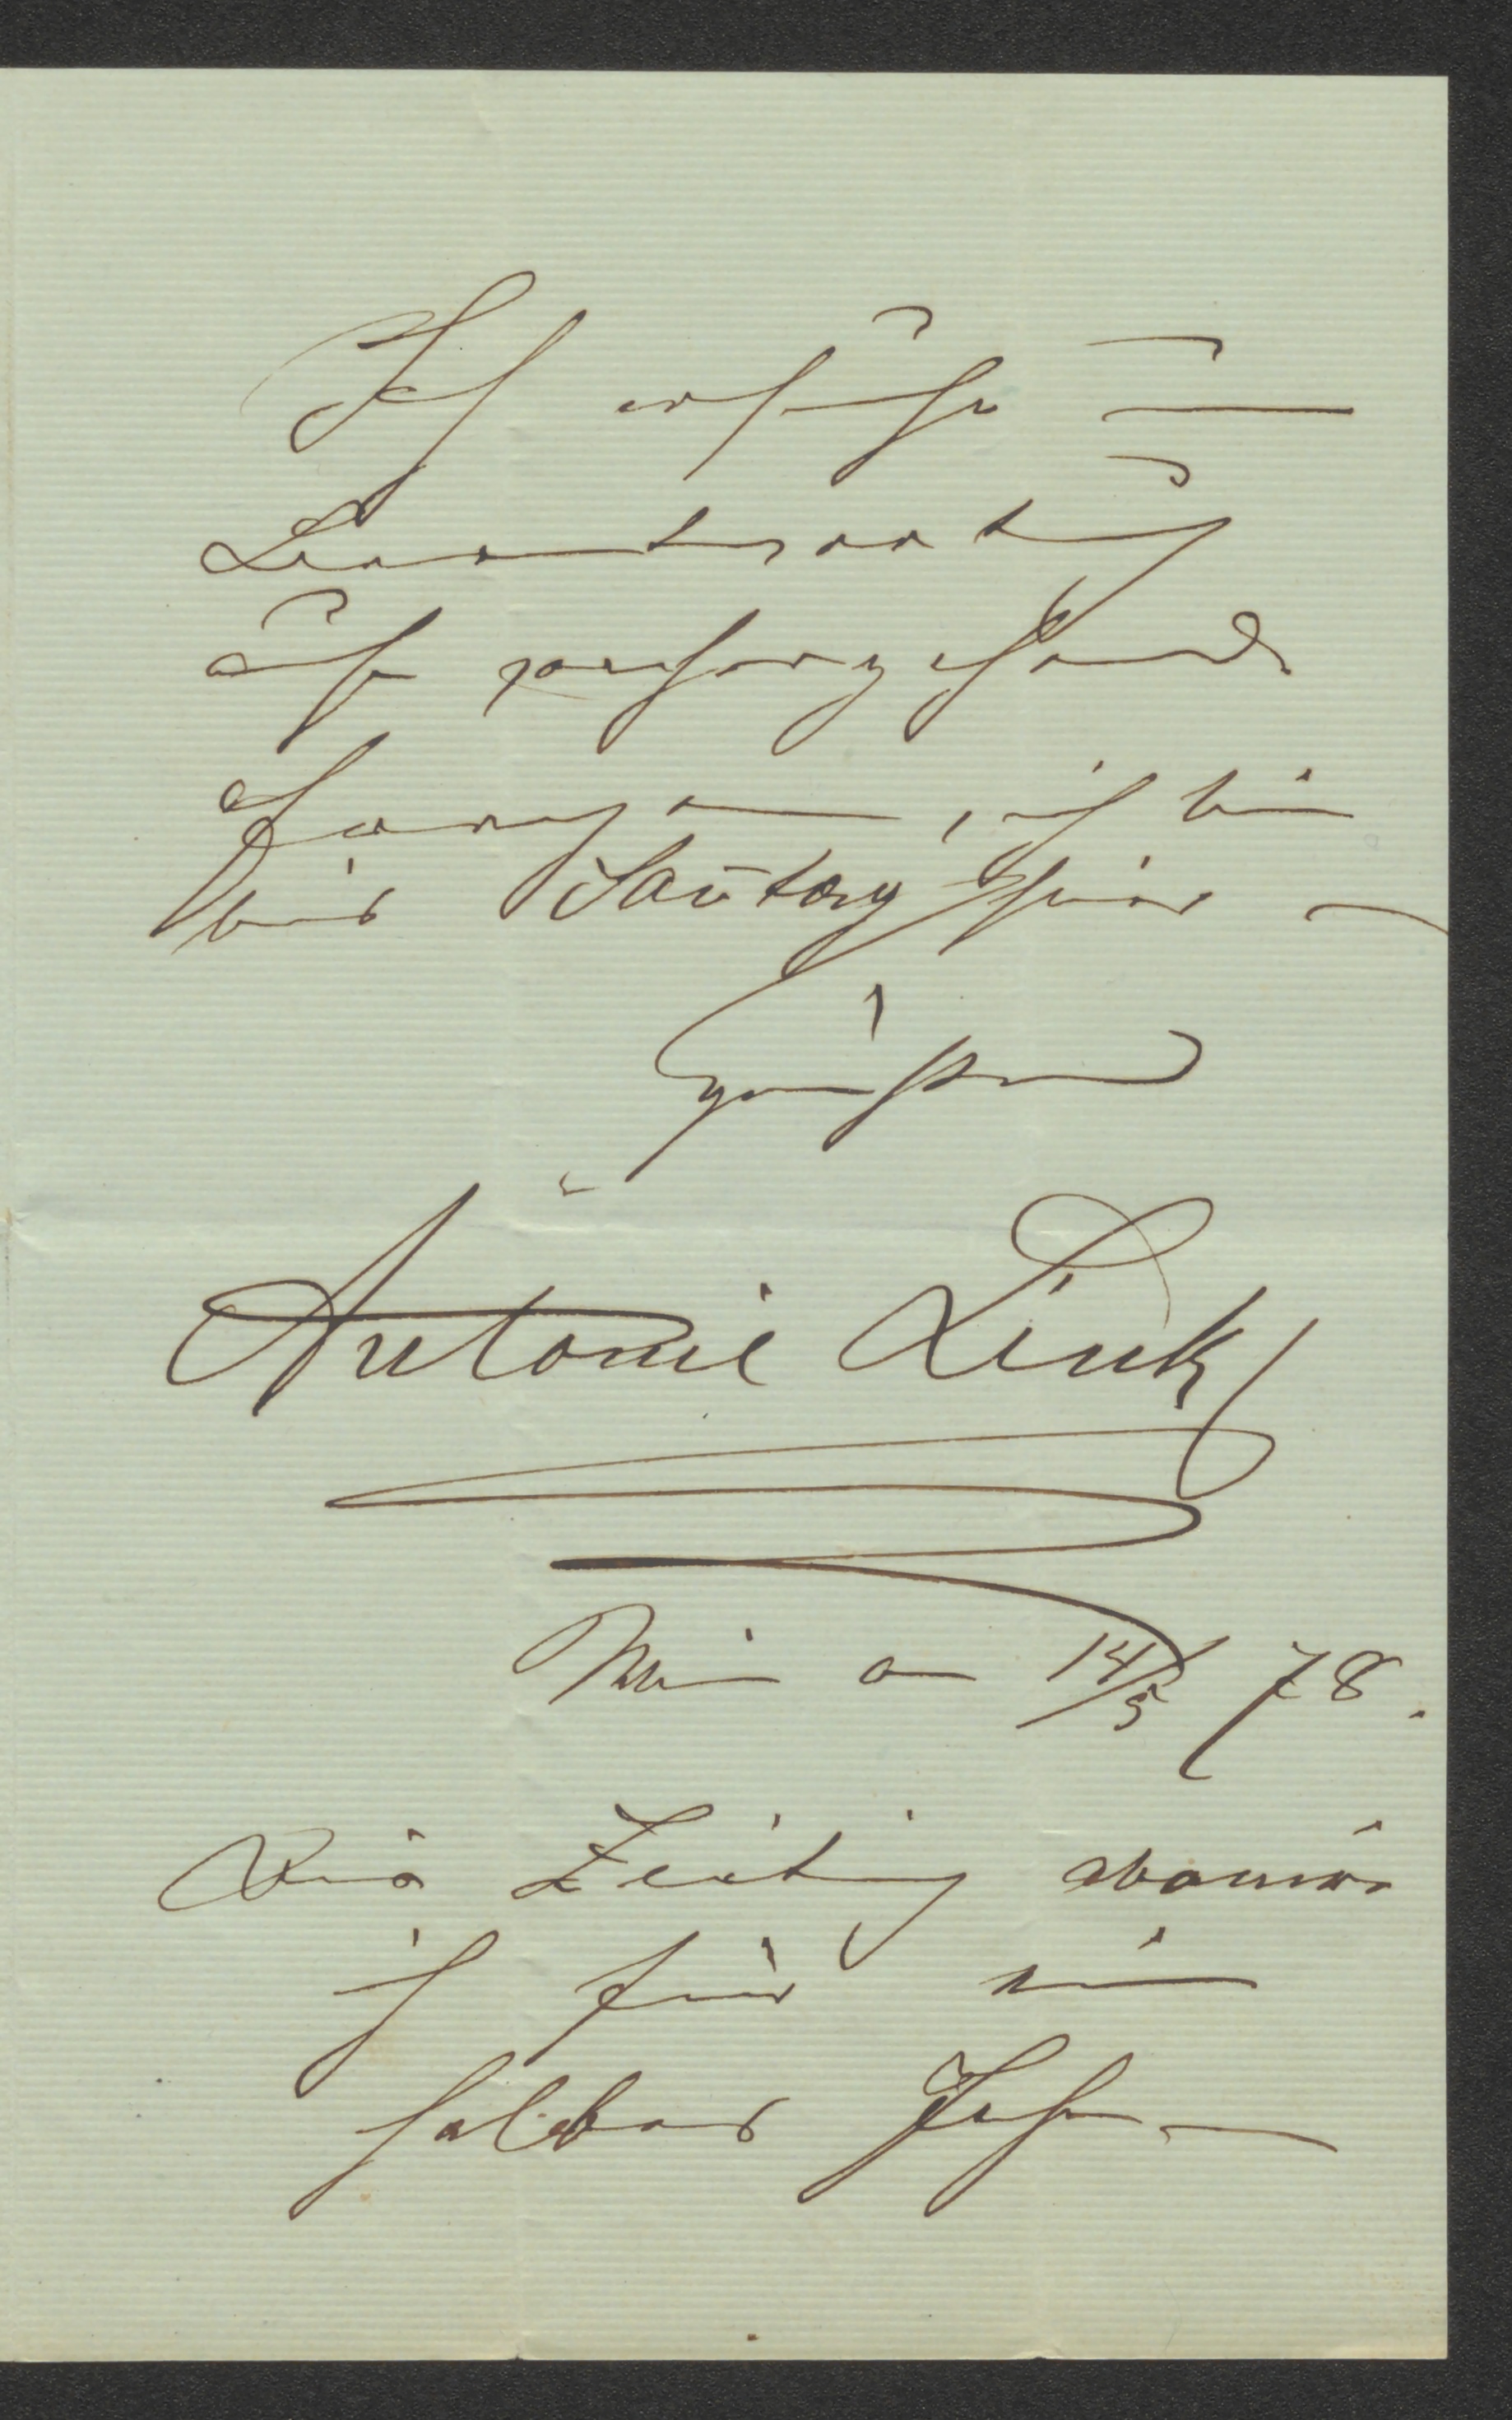 Ich ersuche um
Beantwortung
auf vorhergehende
Fragen, ich bin
bis Sontag hier –
Grüssend
Antonie Link
Wien am 14/5 78.
Die Zeitung abonire
ich für ein
halbes Jahr –